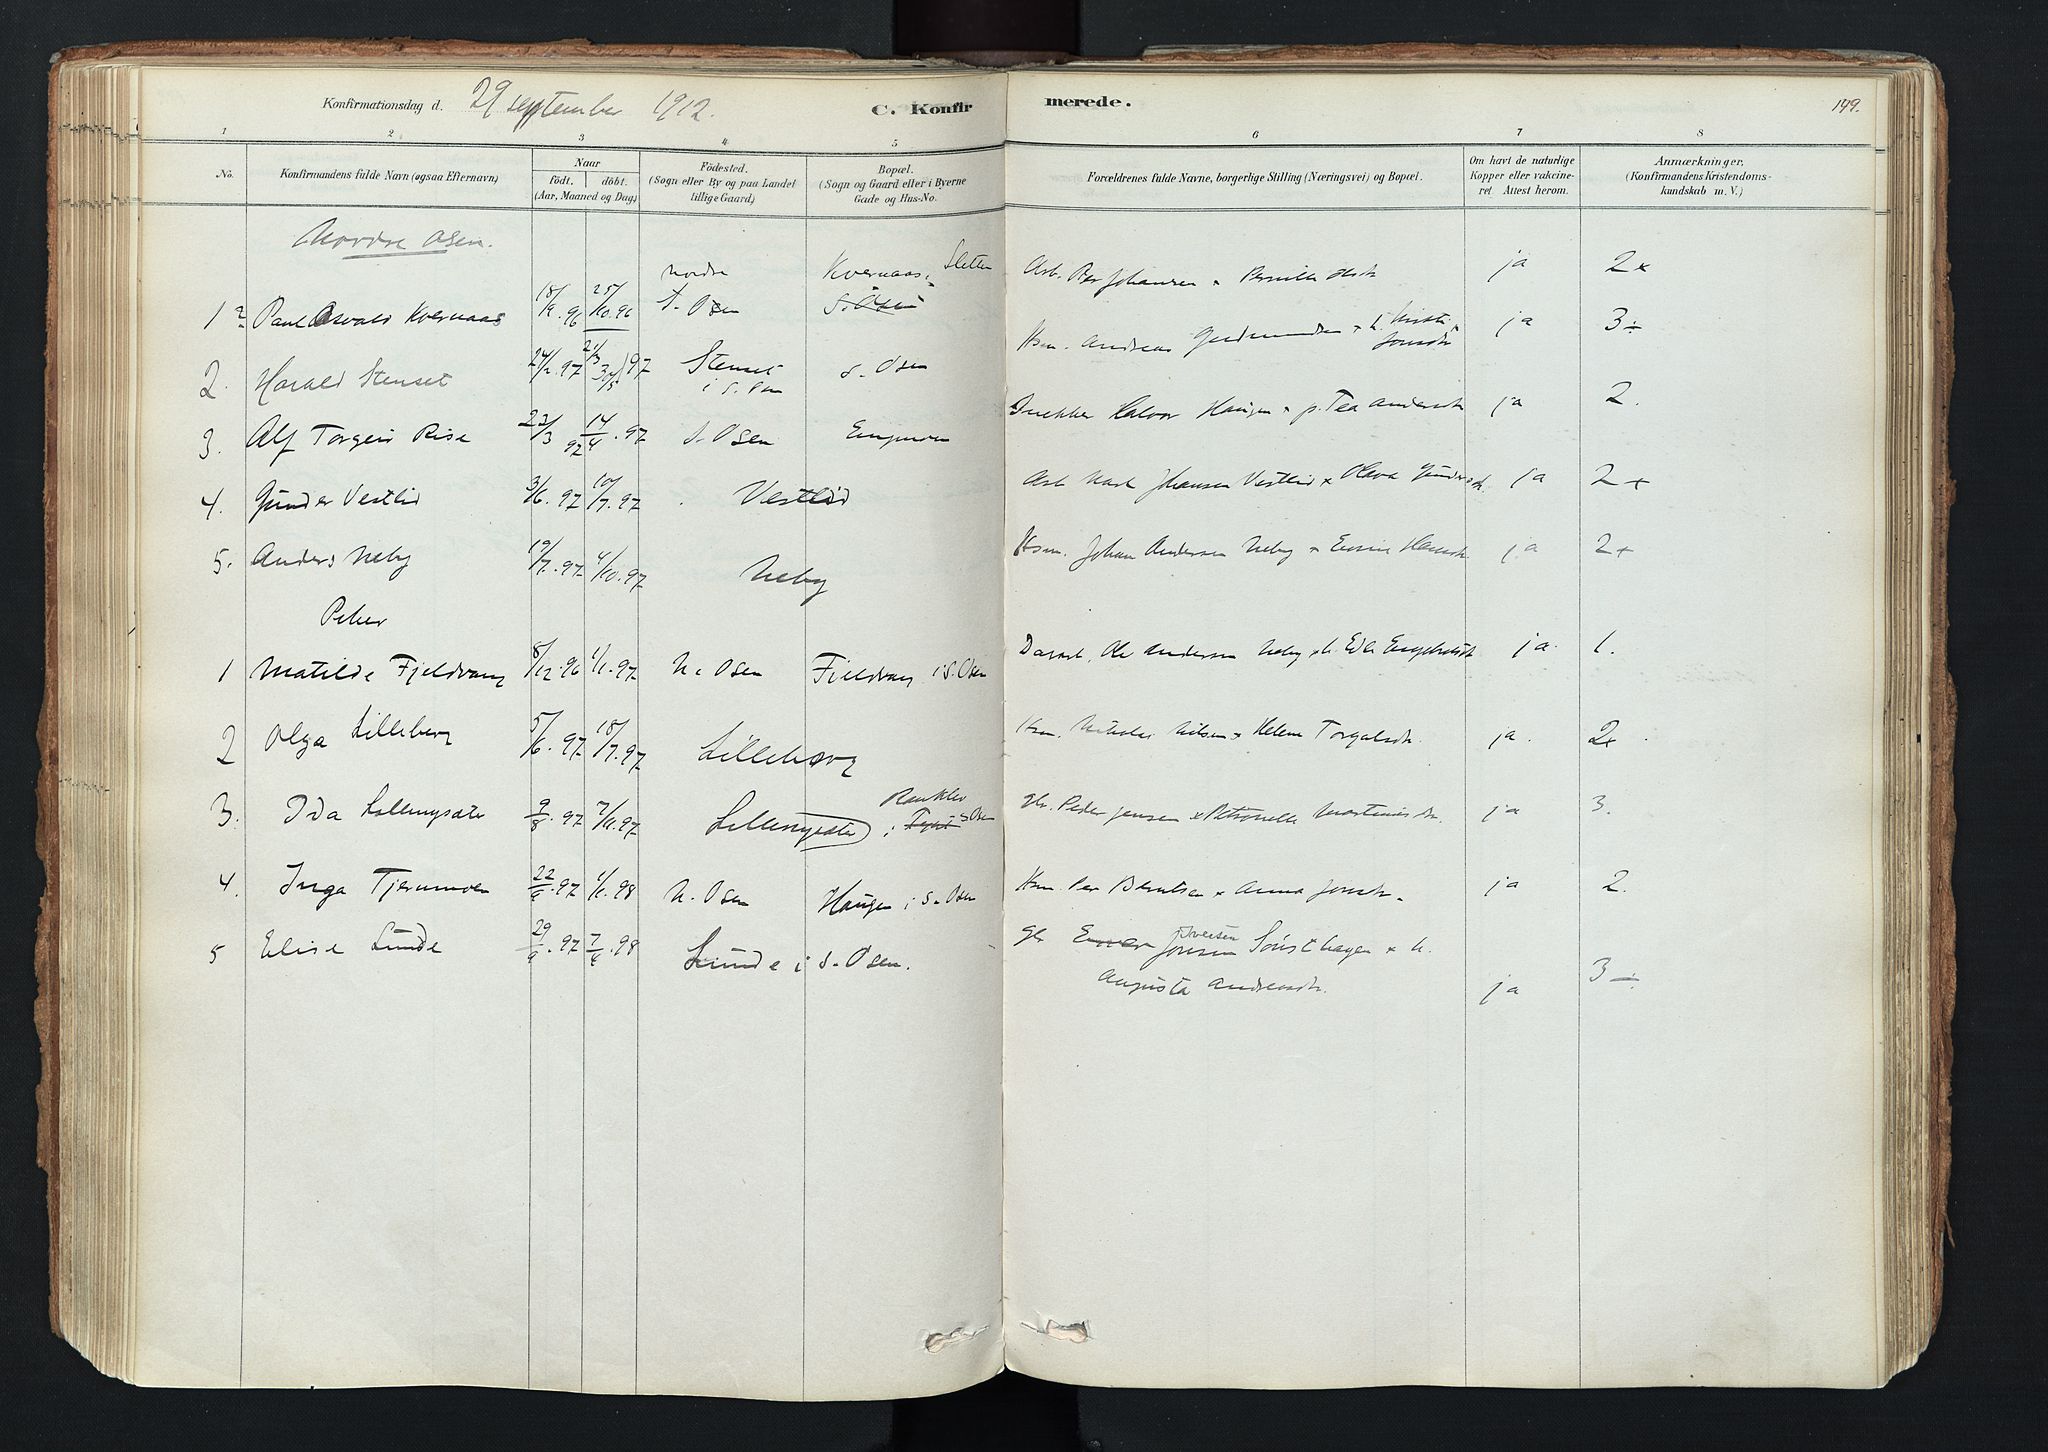 Konfirmationsdag d. 29 september 1912. C. Konfirmerede. 149.
1 2 3 4 5 6 7 8
No. Konfirmandens fulde Navn (ogsaa Efternavn). Naar født. døbt. (Aar, Maaned og Dag.) Födested. (Sogn eller By og paa Landet tillige Gaard.) Bopæl. (Sogn og Gaard eller i Byerne Gade og Hus-No. Forældrenes fulde Navne, borgerlige Stilling (Næringsvei) og Bopæl. Om havt de naturlige Kopper eller vakcineret. Attest herom. Anmærkninger. (Konfirmandens Kristendomskundskab m. V.)
Nordre Osen.
1 Paul Osvald Kvernaas 18/9.96 25/10.96 nordre Osen Kvernaas, Sletten S. Osen Arb. Per Johansen Pernille ja 2+
2. Harald Stenset 24/2.97 Stenset i S. Osen S. Osen Hsm. Andreas Gudmundsen ja 3÷
3. Alf Torgeir Rise 22/3 97 14/4.97 S. Osen Snekker Halvor Haugen p. Tea Andersdt ja 2.
4. Gunder Vestlid 3/6.97 10/7.97 Vestlid Arb Johansen Vestlid Olava Gundersdt. ja 2+
5. Anders Neby 19/7.97 4/10.97 Neby Hsm. Johan Andersen Neby ja 2+
Piker
1 Matilde Fjeldvang 8/12.96 1/1.97 N. Osen Fjeldvang i S. Osen Ole Andersen Neby ja. 1.
2 Olga Lilleberg 5/6.97 18/7.97 Lilleberg Hsm. Nikolai Nilsen Helene Torgalsdt. ja. 2+
3. Ida Lillenysæter 9/8.97 7/11.97 Lillenysæter i S Osen Gbr. Peder Jensen Petronelle ja 3.
4. Inga Tjernmoen 22/9.97 1/1.98 N. Osen Haugen i S. Osen Hsm. Per Berntsen Anna Jonsdt. ja 2.
5 Elise Lunde 29/9.97 7/4.98 Lunde i S. Osen. Gbr Iversen Jonsen Sørsthagen h.
Augusta Andreasdt. ja 3÷